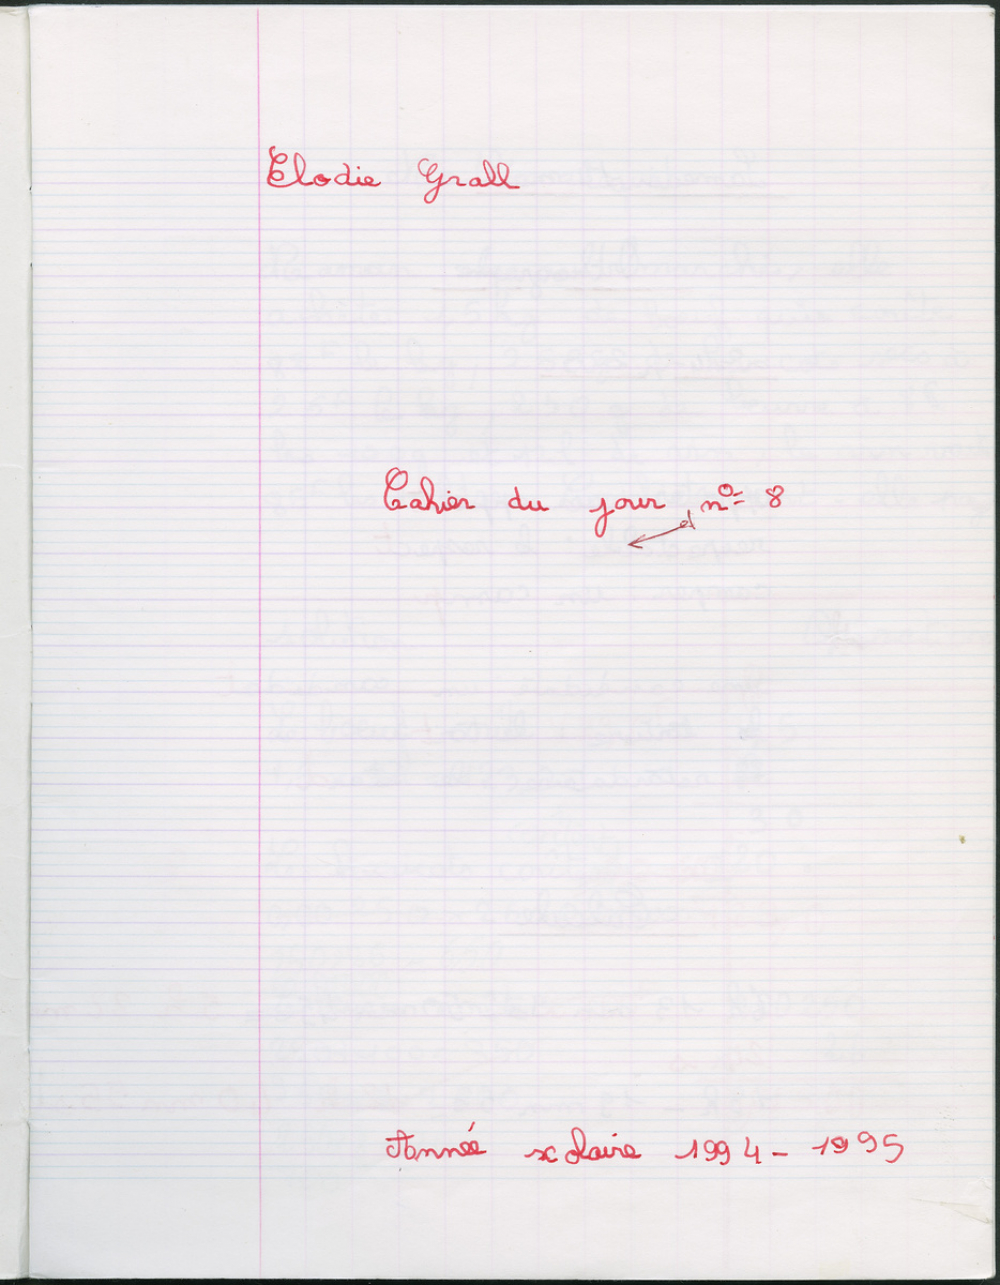 Elodie Grall
Cahier du jour n° 8
Année scolaire 1994 - 1995